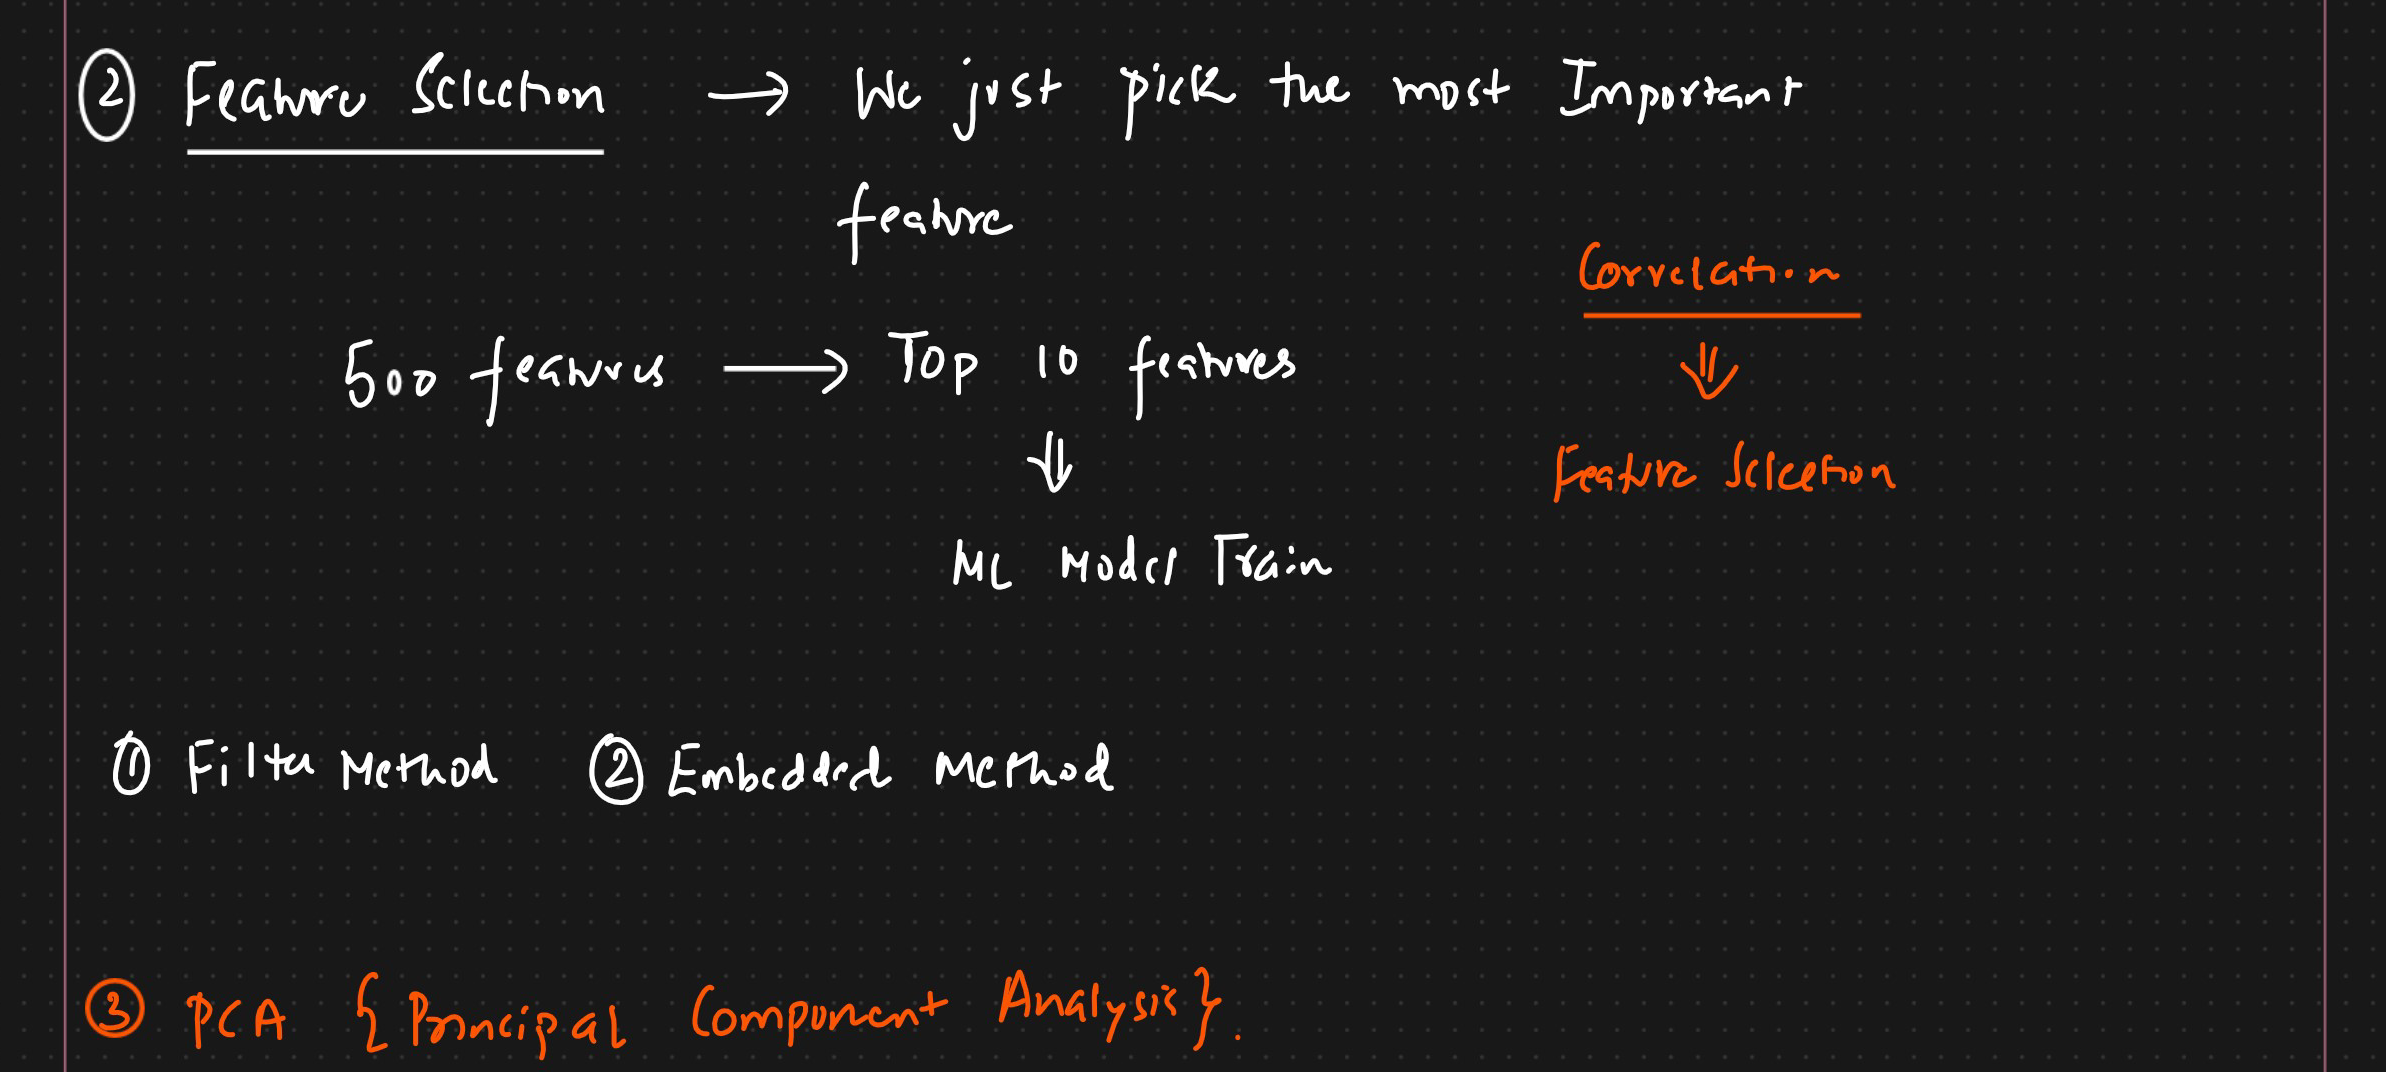 ② Feature Selection → We just pick the most Important
feature
Correlation
⇓
500 features → Top 10 features
⇓
Feature Selection
ML Model Train
① Filter Method ② Embedded Method
③ PCA {Principal Component Analysis}.